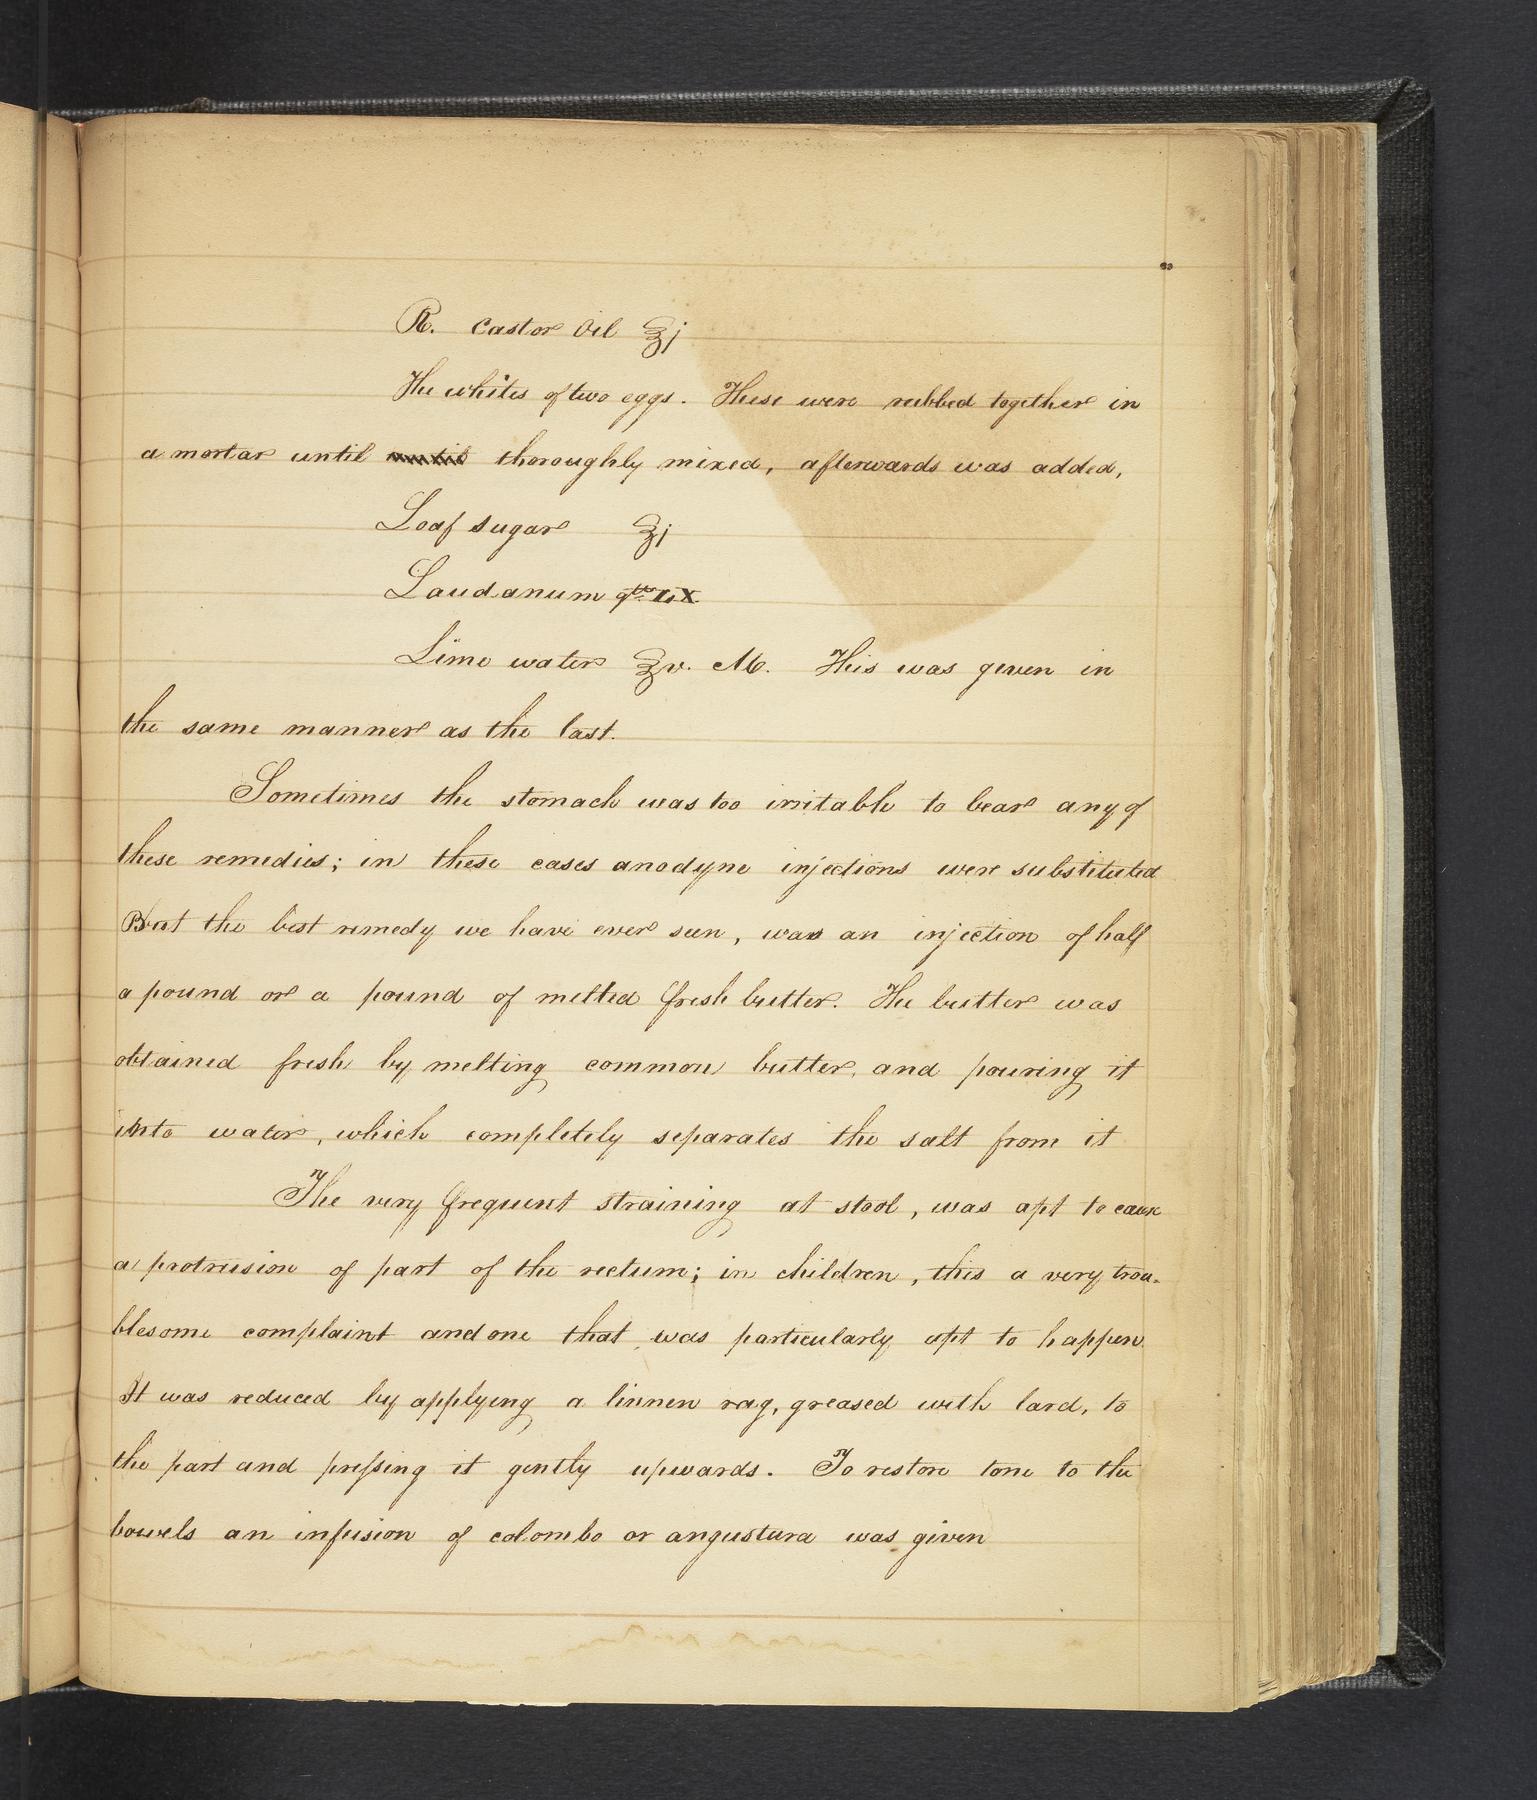 ℞. Castor Oil ℥j
The whites of two eggs. These were rubbed together in
a mortar until until thoroughly mixed, afterwards was added,
Loaf sugar ℥j
Laudanum gtts LX
Lime water ℥v. M. This was given in
the same manner as the last.
Sometimes the stomach was too irritable to bear any of
these remedies; in these cases anodyne injections were substituted
But the best remedy we have ever seen, was an injection of half
a pound or a pound of melted fresh butter. The butter was
obtained fresh by melting common butter, and pouring it
into water, which completely separates the salt from it
The very frequent straining at stool, was apt to cause
a protrusion of part of the rectum; in children, this a very trou-
blesome complaint and one that was particularly apt to happen
It was reduced by applying a linnen rag, greased with lard, to
the part and pressing it gently upwards. To restore tone to the
bowels an infusion of colombo or angustura was given